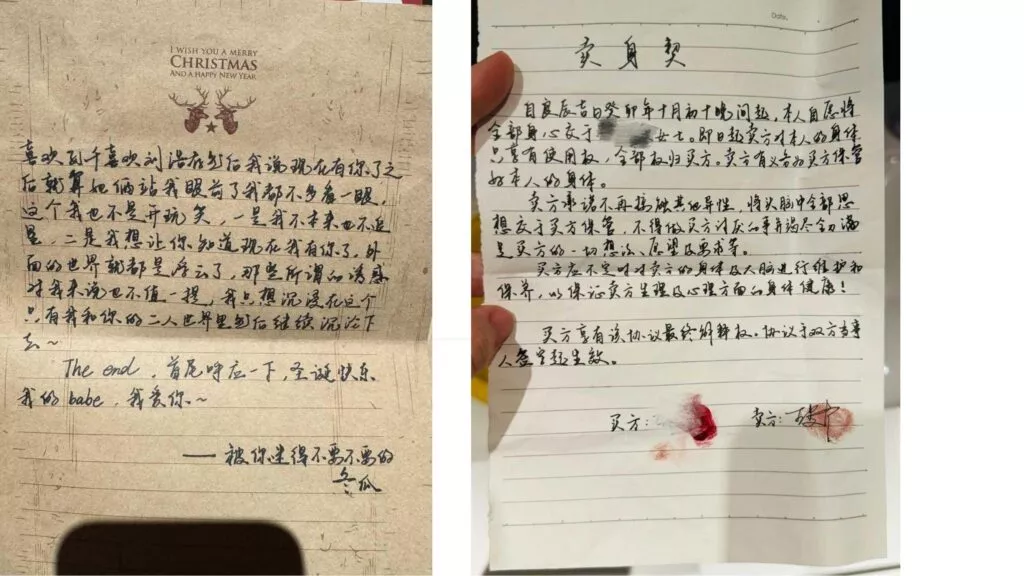 I WISH YOU A MERRY
CHRISTMAS
AND A HAPPY NEW YEAR
喜欢到千喜欢刘浩存然后我说现在有你了之
后就算她俩站我眼前了我都不多看一眼,
这个我也不是开玩笑,一是我本来也不追
星,二是我想让你知道现在我有你了,外
面的世界就都是浮云了,那些所谓的诱惑
对我来说也不值一提,我只想沉浸在这个
只有我和你的二人世界里然后继续沉沦下
去~
The end,首尾呼应一下,圣诞快乐
我的babe,我爱你~
——被你迷得不要不要的
冬瓜
Date.
卖身契
自良辰吉日癸卯年十月初十晚间起,本人自愿将
全部身心交于 女士。即日起卖方对本人的身体
只享有使用权,全部权归买方。卖方有义务为买方保管
好本人的身体。
卖方承诺不再接触其他异性,将头脑中全部思
想交于买方保管,不得做买方讨厌的事并竭尽全力满
足买方的一切想法、愿望及要求等。
买方应不定时对卖方的身体及人脑进行维护和
保养,以保证卖方生理及心理方面的身体健康!
买方享有该协议最终解释权。协议于双方当事
人签字起生效。
买方: 卖方: